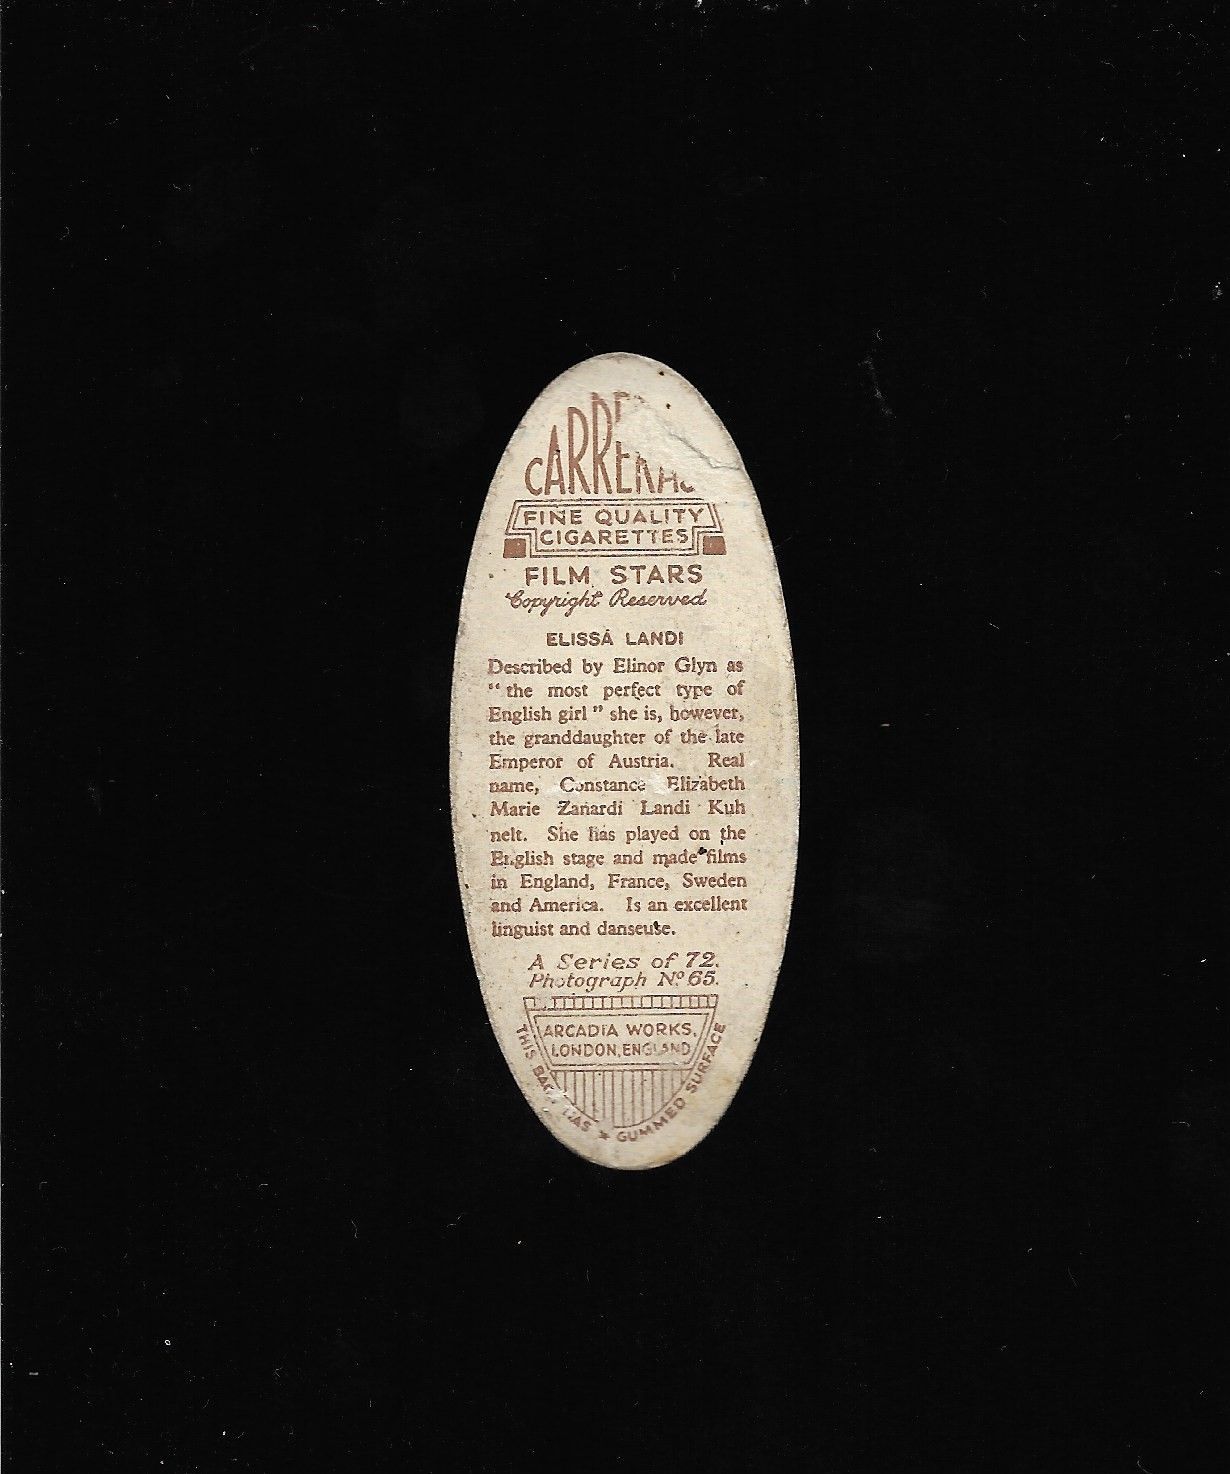 CARRERAS
FINE QUALITY
CIGARETTES
FILM STARS
Copyright Reserved
ELISSA LANDI
Described by Elinor Glyn as
" the most perfect type of
English girl " she is, however,
the granddaughter of the late
Emperor of Austria. Real
name, Constance Elizabeth
Marie Zanardi Landi Kuh
nelt. She has played on the
English stage and made films
in England, France, Sweden
and America. Is an excellent
linguist and danseuse.
A Series of 72.
Photograph Nº 65.
ARCADIA WORKS,
LONDON, ENGLAND
THIS BACK HAS ★ GUMMED SURFACE